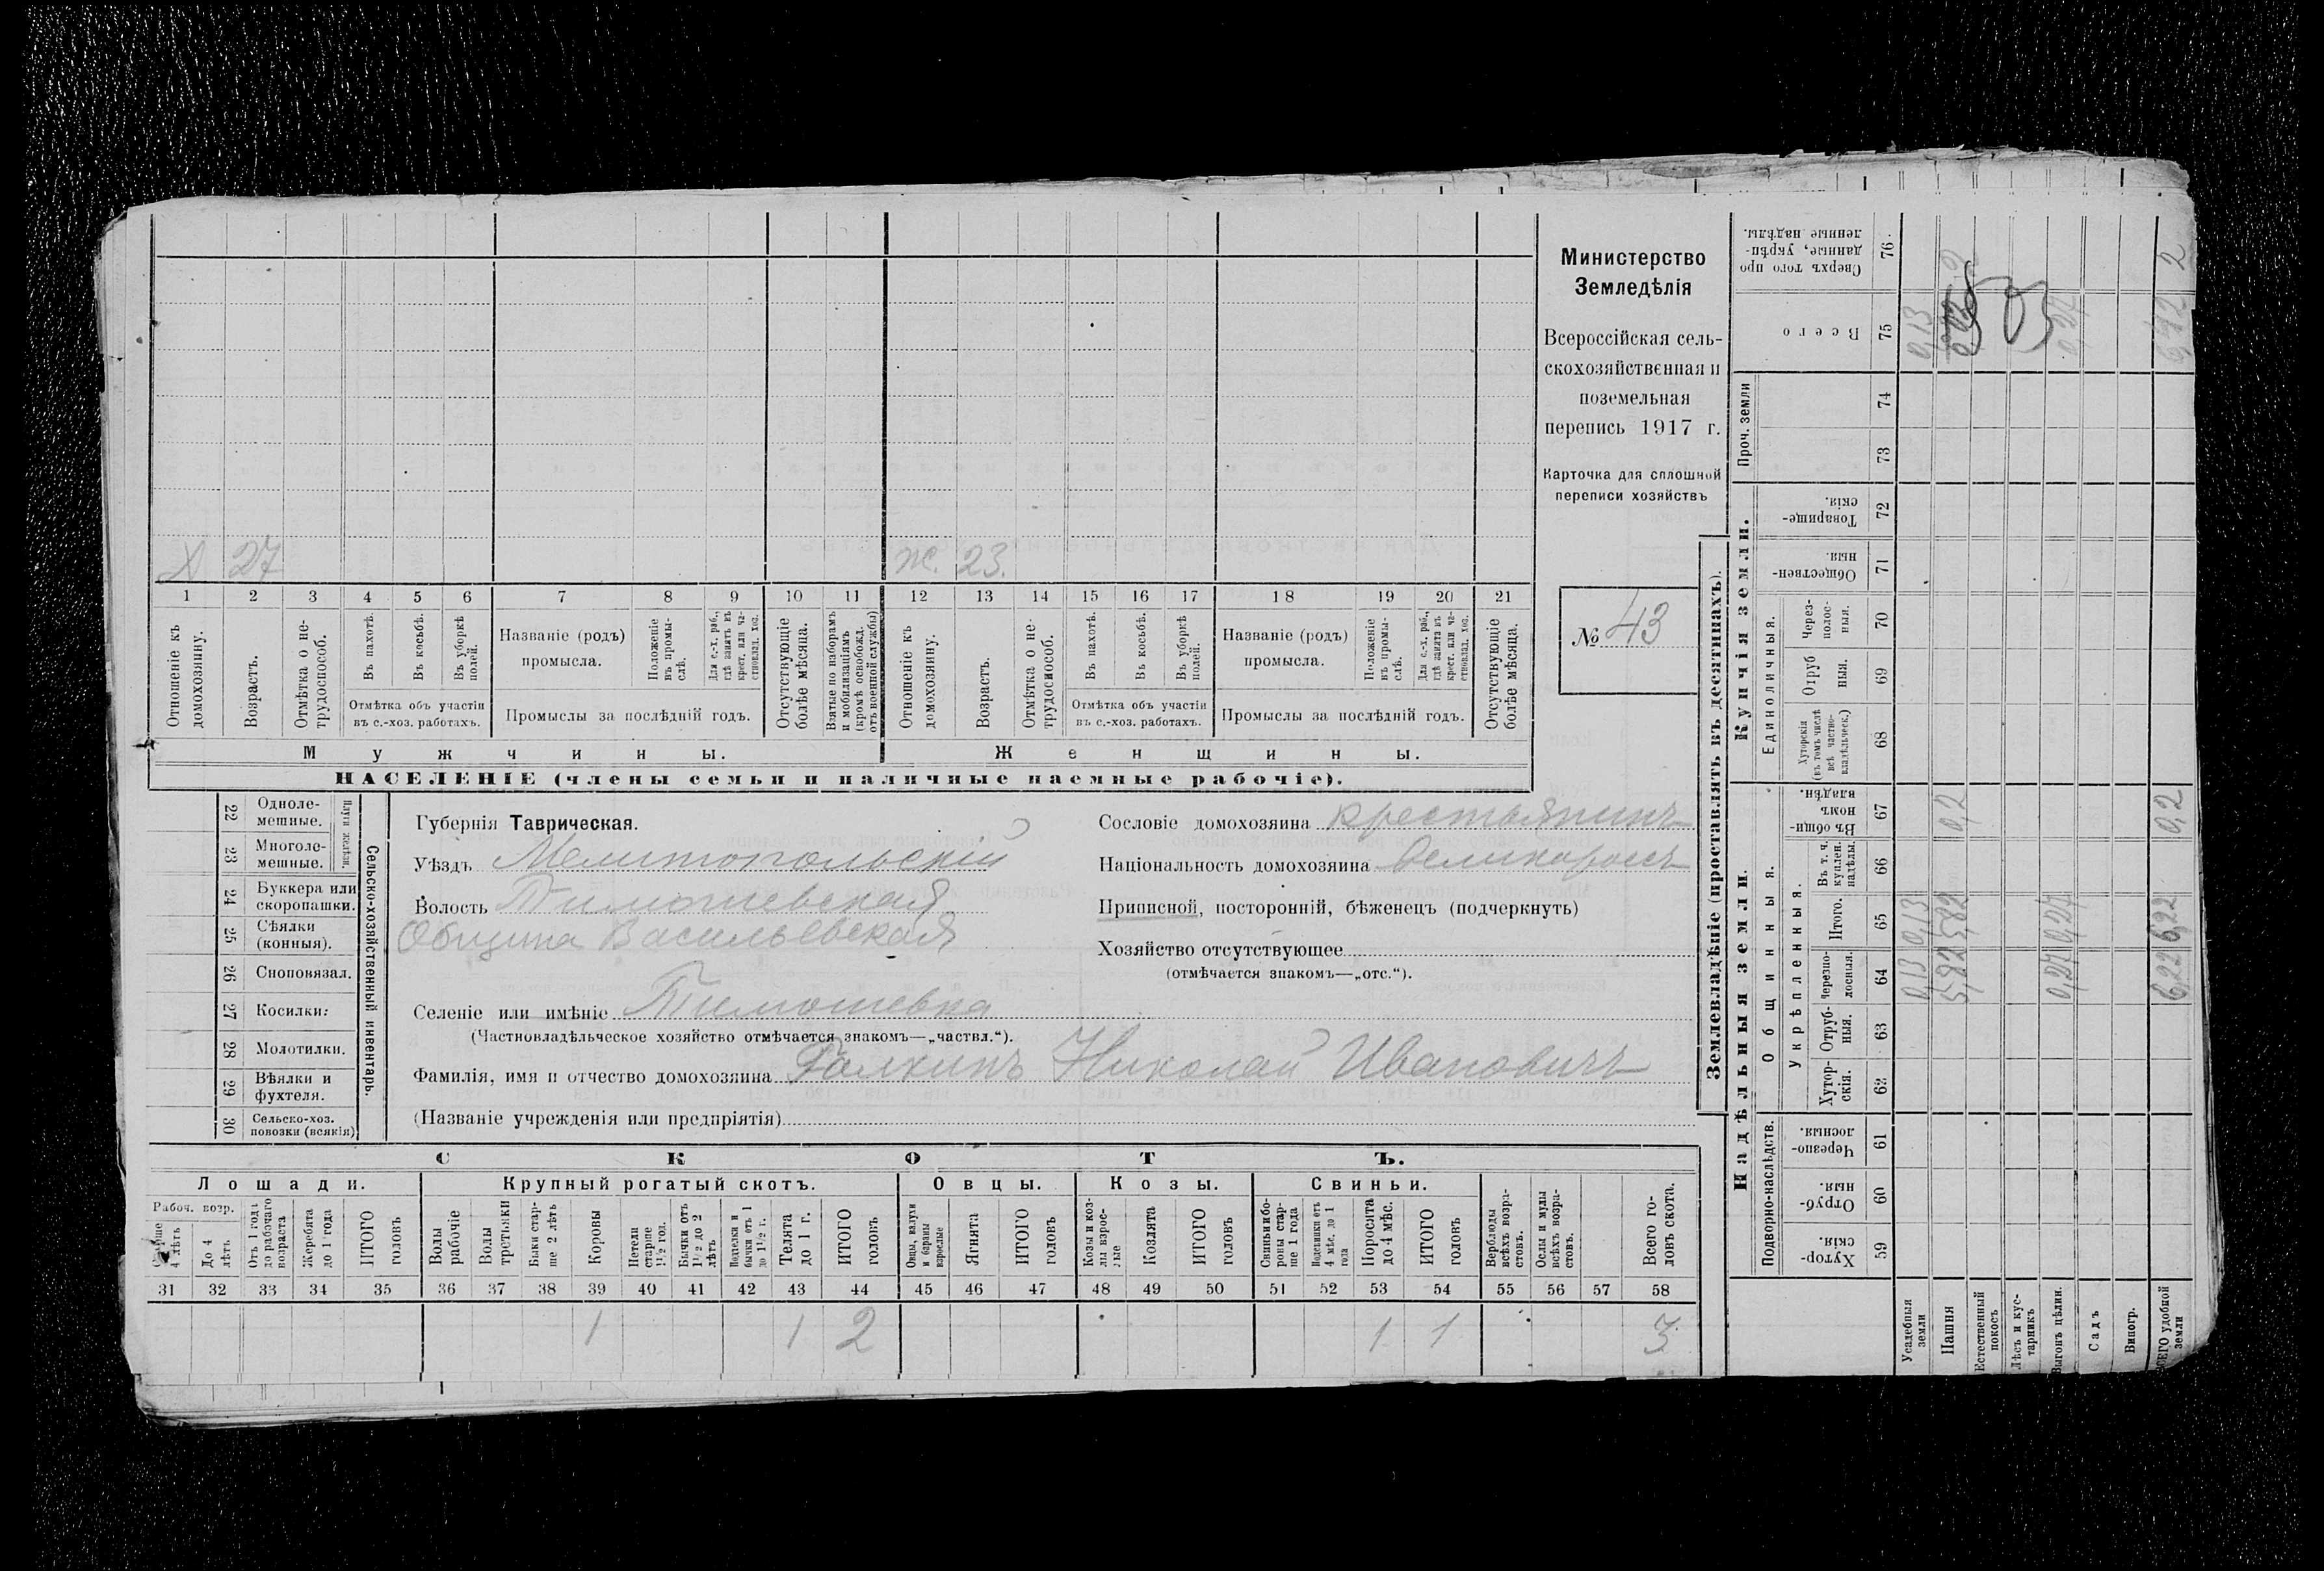 Министерство
Земледѣлія
Всероссійская сель-
скохозяйственная и
поземельная
перепись 1917 г.
Карточка для сплошной
переписи хозяйствъ
№ 43
Х 27
ж. 23.
1 2 3 4 5 6 7 8 9 10 11 12 13 14 15 16 17 18 19 20 21
Отношеніе къ домохозяину.
Возрастъ.
Отмѣтка о не-трудоспособ.
Въ пахотѣ.
Въ косьбѣ.
Въ уборкѣ полей.
Отмѣтка объ участіи
въ с.-хоз. работахъ.
Названіе (родъ)
промысла.
Положеніе въ промы-слѣ.
Для с.-х. раб., гдѣ занятъ въ крест. или ча-стновлад. хоз.
Промыслы за послѣдній годъ.
Отсутствующіе болѣе мѣсяца.
Взятые по наборамъ и мобилизаціямъ (кромѣ освобожд. отъ военной службы)
Отношеніе къ домохозяину.
Возрастъ.
Отмѣтка о не-трудоспособ.
Въ пахотѣ.
Въ косьбѣ.
Въ уборкѣ полей.
Отмѣтка объ участіи
въ с.-хоз. работахъ.
Названіе (родъ)
промысла.
Положеніе въ промы-слѣ.
Для с.-х. раб., гдѣ занята въ крест. или ча-стновлад. хоз.
Промыслы за послѣдній годъ.
Отсутствующіе болѣе мѣсяца.
Мужчины. Женщины.
НАСЕЛЕНІЕ (члены семьи и наличные наемные рабочіе).
Сельско-хозяйственный инвентарь.
Плуги желѣзн.
22 Одноле-мешные.
23 Многоле-мешные.
24 Буккера или скоропашки.
25 Сѣялки (конныя).
26 Сноповязал.
27 Косилки:
28 Молотилки.
29 Вѣялки и фухтеля.
30 Сельско-хоз. повозки (всякія)
Губернія Таврическая.
Уѣздъ Мелитопольскій
Волость Тимошевская
Община Васильевская
Селеніе или имѣніе Тимошевка
(Частновладѣльческое хозяйство отмѣчается знакомъ—„частвл.“).
Фамилія, имя и отчество домохозяина Галкинъ Николай Ивановичъ
(Названіе учрежденія или предпріятія)
Сословіе домохозяина крестьянинъ
Національность домохозяина великороссъ
Приписной, посторонній, бѣженецъ (подчеркнуть)
Хозяйство отсутствующее
(отмѣчается знакомъ—„отс.“).
СКОТЪ.
Лошади. Крупный рогатый скотъ. Овцы. Козы. Свиньи.
Рабоч. возр.
4 лѣтъ
До 4 лѣтъ
Отъ 1 года до рабочаго возраста
Жеребята до 1 года
ИТОГО головъ
Волы рабочіе
Волы третьяки
Быки стар-ше 2 лѣтъ
Коровы
Нетели старше 1½ год.
Бычки отъ 1½ до 2 лѣтъ
бычки отъ 1 до 1½ г.
Телята до 1 г.
ИТОГО головъ
Овцы, валухи и бараны взрослые
Ягнята
ИТОГО головъ
Козы и коз-лы взрос-лые
Козлята
ИТОГО головъ
Свиньи и бо-ровы стар-ше 1 года
Подсвинки отъ 4 мѣс. до 1 года
Поросята до 4 мѣс.
ИТОГО головъ
Верблюды всѣхъ возра-стовъ.
Ослы и мулы всѣхъ возра-стовъ.
Всего го-ловъ скота.
31 32 33 34 35 36 37 38 39 40 41 42 43 44 45 46 47 48 49 50 51 52 53 54 55 56 57 58
1 1 2 1 1 3
Землевладѣніе (проставлять въ десятинахъ).
Надѣльныя земли. Купчія земли. Проч. земли
Подворно-наслѣдств.
Общинныя.
Укрѣпленныя.
Единоличныя.
59 Хутор-скія.
60 Отруб-ныя.
61 Черезпо-лосныя.
62 Хутор-скія.
63 Отруб-ныя.
64 Черезпо-лосныя.
65 Итого.
66 Въ т. ч. куплен. надѣлы.
67 Въ общи-номъ владѣн.
68 Хуторскія (въ томъ числѣ всѣ частно-владѣльческ.)
69 Отруб ныя.
70 Через-полос-ныя.
71 Обществен-ныя.
72 Товарище-скія.
73
74
75 Всего
76 Сверхъ того про данные, укрѣп-ленные надѣлы.
Усадебныя земли 0,13 0,13 0,13
Пашня 5,82 5,82 0,2
Естественный покосъ
Лѣсъ и кус-тарникъ
Выгонъ цѣлин. 0,27 0,27 0,27
Садъ
Виногр.
ВСЕГО удобной земли 6,22 6,22 0,2 2